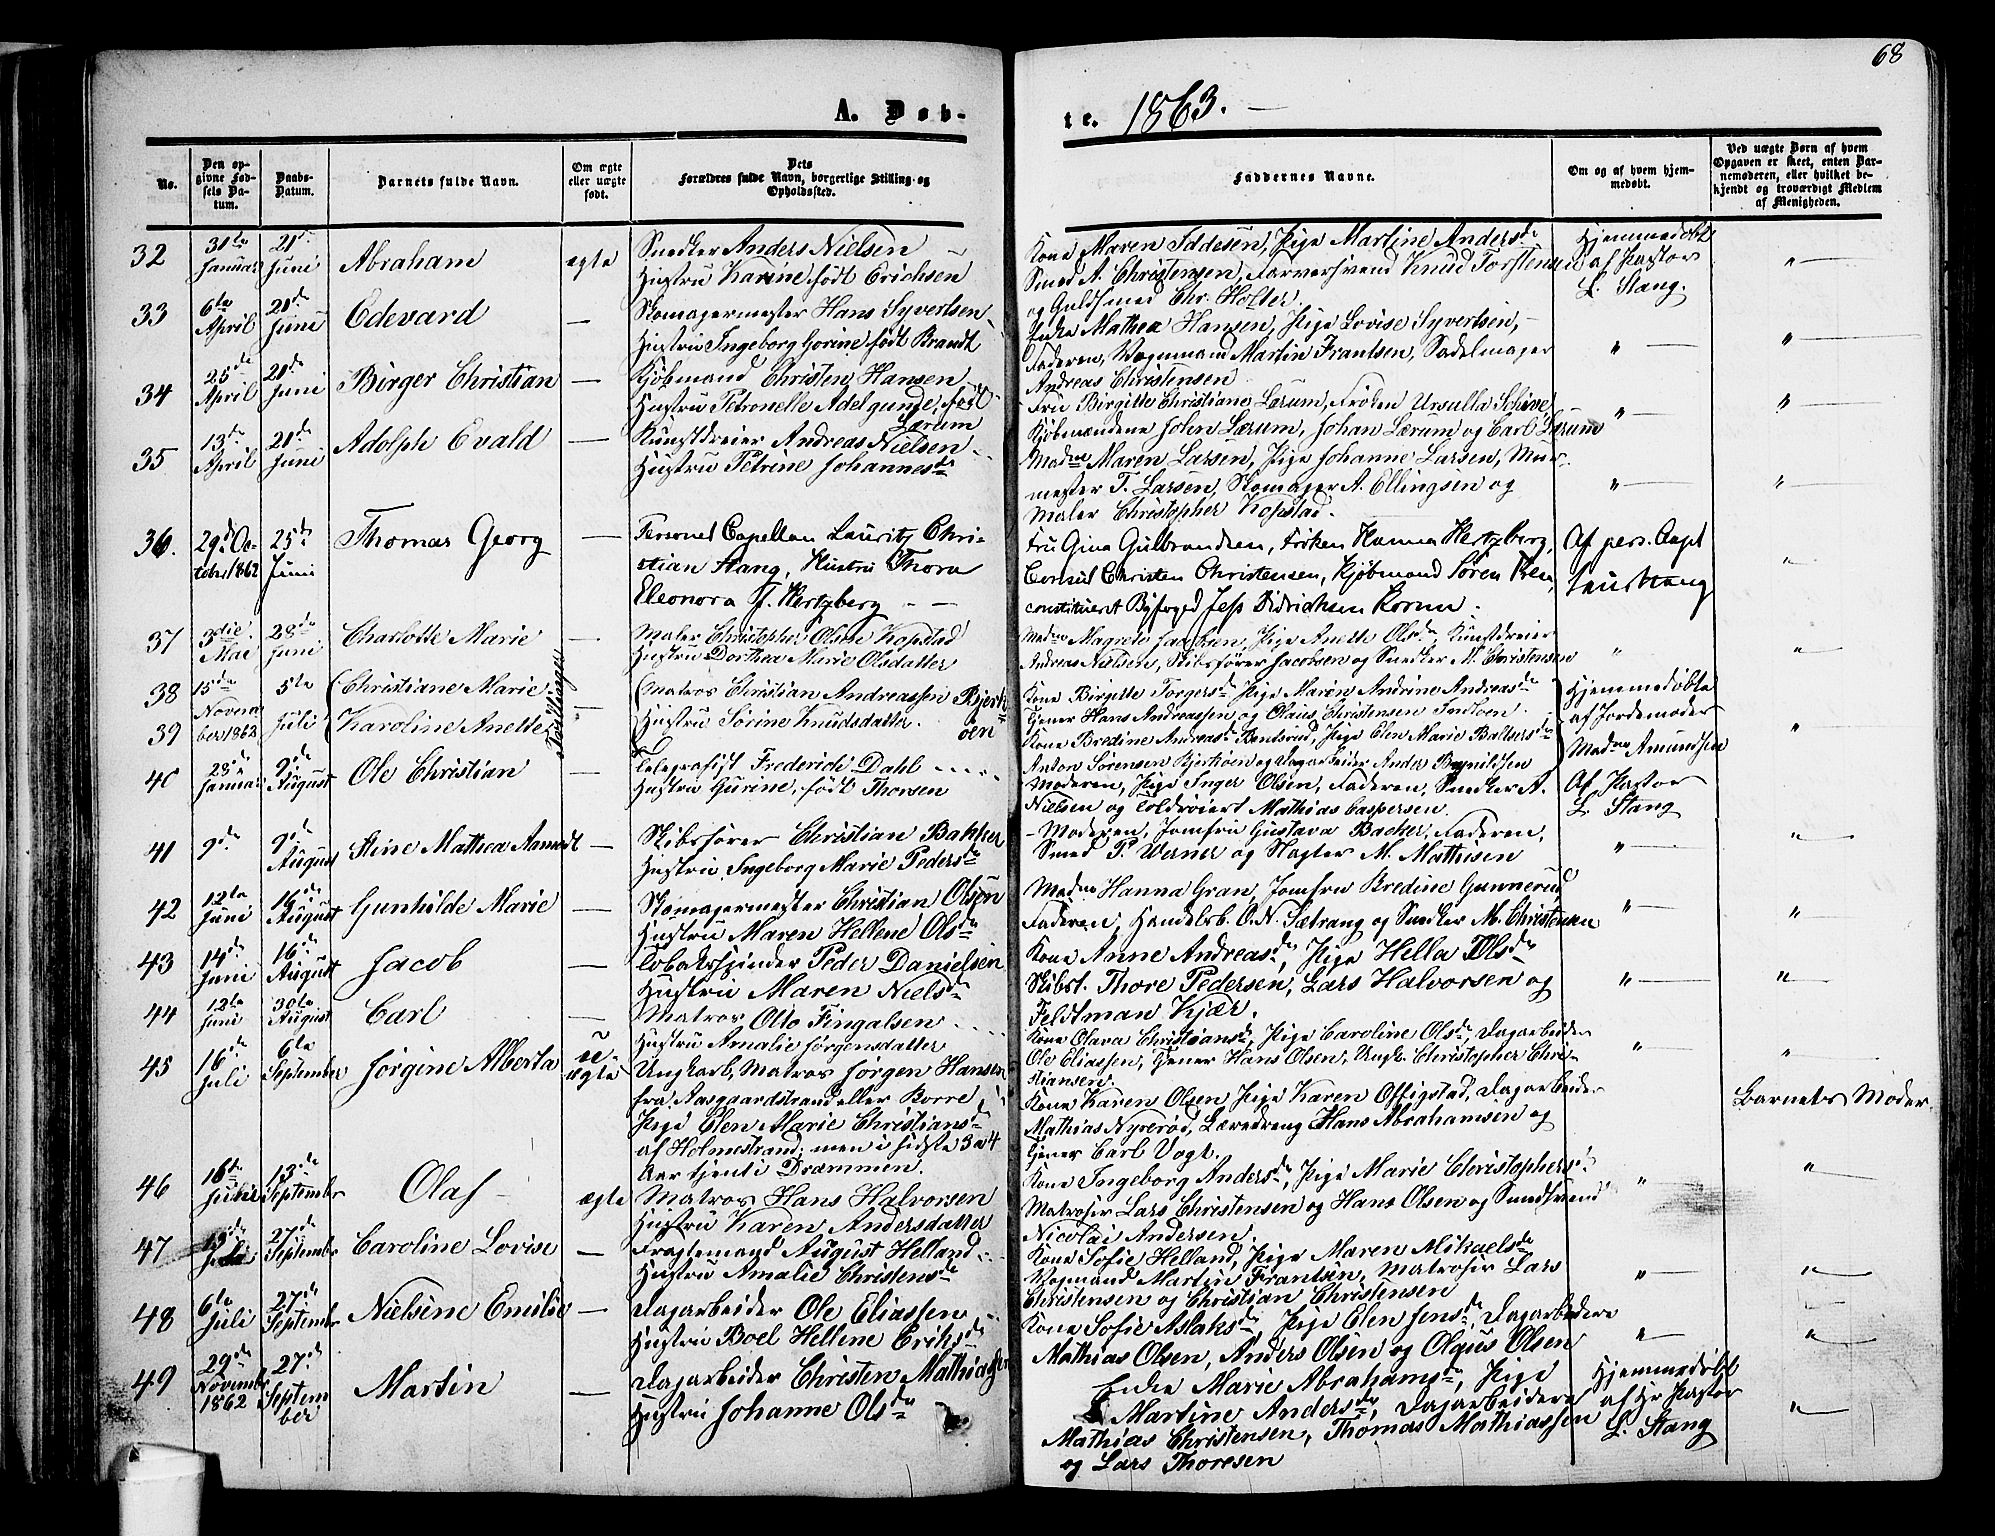 68
A. Døb-
te. 1863.
No.
Den op-
givne Fød-
sels Da-
tum.
Daabs-
Datum.
Barnets fulde Navn.
Om ægte
eller uægte
født.
Dets
Forældres fulde Navn, borgerlige Stilling og
Opholdssted.
Faddernes Navne.
Om og af hvem hjem-
medøbt.
Ved uægte Børn af hvem
Opgaven er skeet, enten Bar-
nemoderen, eller hvilket be-
kjendt og troværdigt Medlem
af Menigheden.
32
31te
Januar
21de
Juni
Abraham
ægte
Snedker Anders Nielsen
Hustru Karine født Erichsen
Kone Maren Iddesen, Pige Martine Andersdr
Smed A. Christensen, Farversvend Knud Torstensen
og Guldsmed Chr. Holter.
Hjemmedøbt
af Pastor
L. Stang.
33
6te
April
21de
Juni
Edevard
Skomagermester Hans Syvertsen
Hustru Ingeborg Gorine født Brandt
Enke Mathea Hansen, Pige Lovise Syvertsen,
Faderen, Vognmand Martin Frantsen, Sadelmager
Andreas Christensen
34
25de
April
21de
Juni
Birger Christian
Kjøbmand Christen Hansen
Hustru Petronelle Adelgunde, født
Lærum
Fru Birgitte Christiane Lærum, Frøken Ursulla Schive
Kjøbmændene John Lærum, Johan Lærum og Carl Lærum
35
13de
April
21de
Juni
Adolph Evald
Kunstdreier Andreas Nielsen
Hustru Petrine Johannesdr
Madme Maren Larsen, Pige Johanne Larsen, Mur-
mester T. Larsen, Skomager A. Ellingsen og
Maler Christopher Kopstad.
36.
29de Oc-
tober 1862
25de
Juni
Thomas Georg
Personel Capellan Lauritz Chri-
stian Stang, Hustru Thora
Eleonora f. Hertzberg
Fru Gina Gulbrandsen, Frøken Hanna Hertzberg,
Consul Christen Christensen, Kjøbmand Søren
constitueret Byfoged Jess Didrichsen
Af pers. Capl
Laur Stang
37
3die
Mai
28de
Juni
Charlotte Marie
Maler Christopher Olsen Kopstad
Hustru Dorthea Marie Olsdatter
Madme Magrete Jacobsen, Pige Anette Olsdr, Kunstdreier
Andreas Nielsen, Skibsfører Jacobsen og Snedker M. Christensen
38
39
15de
Novem-
ber 1862
5te
Juli
Christiane Marie
Karoline Anette
Tvillinger
Matros Christian Andreassen Bjerk-
øen
Hustru Sørine Knudsdatter.
Kone Birgitte Torgersdr, Pige Maren Andrine Andreasdr
Tjener Hans Andreassen og Olaus Christensen
Kone Bredine Andreasdr Bentsrud, Pige Elen Marie Baltersdr
Anton Sørensen Bjerkøen og Dagarbeider Ander
Hjemmedøbte
af Jordemoder
Madme Amundsen
40
Januar
9de
August
Ole Christian
Telegrafist Frederich Dahl
Hustru Gurine, født Thorsen
Moderen, Pige Inger Olsen, Faderen, Snedker A.
Nielsen og Toldrøiert Mathias Caspersen.
Af Pastor
L. Stang
41
9de
9de
August
Stine Mathea
Skibsfører Christian Bakker
Hustru Ingeborg Marie Pedersdr
Moderen, Jomfru Gustava Backer, Faderen,
Smed P. Werner og Slagter M. Mathisen
42
12te
Juni
16de
August
Gunhilde Marie
Skomagermester Christian Olsen
Hustru Maren Hellene Olsdr
Madme Hanna Gran, Jomfru Bredine Gunnerud
Faderen, Handelsb. O. N. Sætrang og Snedker M. Christensen
43
14de
Juni
16de
August
Jacob
Tobakspinder Peder Danielsen
Hustru Maren Nielsdr
Kone Anne Andreasdr, Pige Hella Olsdr
Skibst. Thore Pedersen, Lars Halvorsen og
Feldtman Kjær.
44
12te
Juni
30te
August
Carl
Matros Otto Fingalsen
Hustru Amalie Jørgensdatter
Kone Olava Christiansdr, Pige Caroline Olsdr, Dagarbeider
Ole Eliassen, Tjener Hans Olsen, Ungk. Christopher Chri-
stiansen.
45
16de
Juli
6te
September
Jørgine Alberta
u-
ægte
Ungkarl, Matros Jørgen Hansen
fra Aasgaardstrand eller Borre,
Pige Elen Marie Christiansdr
af Holmestrand; men i sidste 3 a 4
Aar tjent i Drammen.
Kone Karen Olsen Pige Karen Offigstad, Dagarbeider
Mathias Nyrerød, Læredreng Hans Abrahamsen og
Tjener Carl Vogt.
Barnets Moder
46
16de
13de
September
Olaf
ægte
Matros Hans Halvorsen
Hustru Karen Andersdatter
Kone Ingeborg Andersdr, Pige Marie Christophersdr
Matroser Lars Christensen og Hans Olsen og Smedsvend
Nicolai Andersen.
47
27de
September
Caroline Lovise
Fragtemand August Helland
Hustru Amalie Christensdr
Kone Sofie Helland, Pige Maren Mikaelsdr
Vognmand Martin Frantsen, Matroser Lars
Christensen og Christian Christensen
48
6te
Juli
27de
September
Nielsine Emilie
Dagarbeider Ole Eliassen
Hustru Boel Hellene Eriksdr
Kone Sofie Aslaksdr, Pige Elen Jensdr, Dagarbeidere
Mathias Olsen, Anders Olsen og Olgus Olsen
49
29de
Novembr
1862
27de
Septem-
ber
Martin
Dagarbeider Christen Mathiassen
Hustru Johanne Olsdr
Enke Marie Abrahamsdr, Pige
Martine Andersdr, Dagarbeidere
Mathias Christensen, Thomas Mathiassen
og Lars Thoresen
Hjemmedøbt
af Hr Pastor
L. Stang